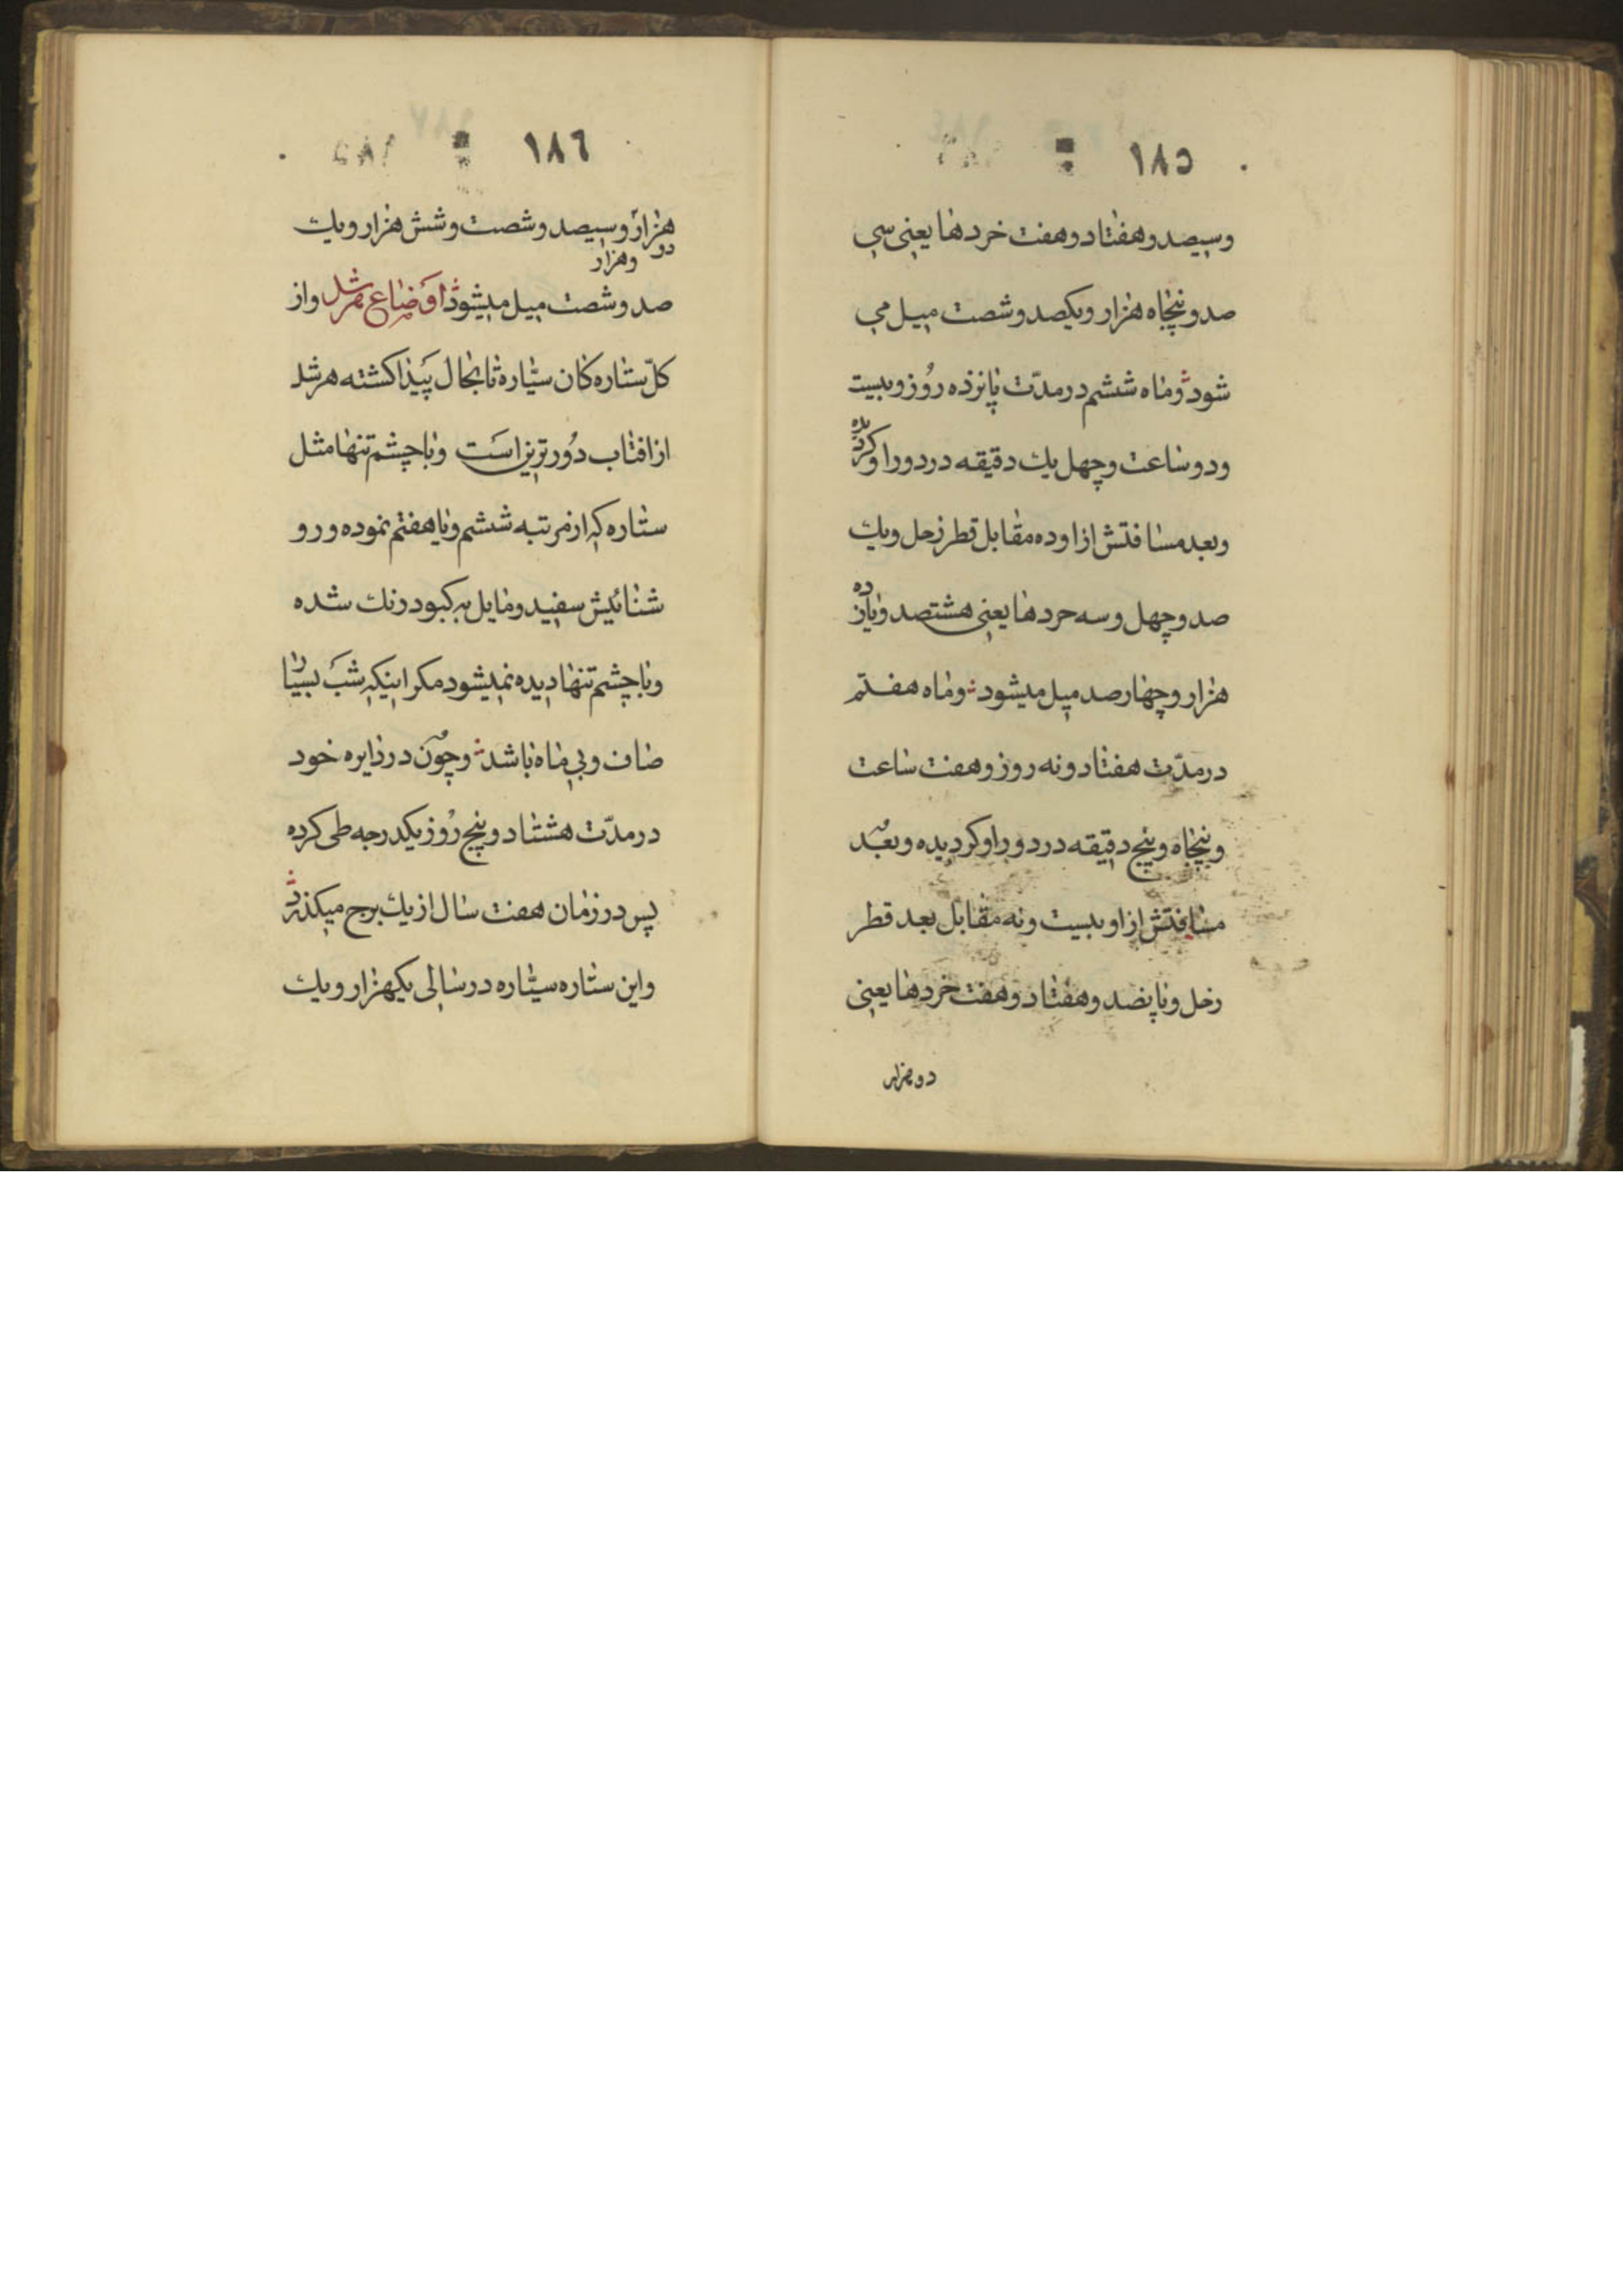 ١٨٥
وسیصد و هفتاد و هفت خردها یعنی سی
صد و پنجاه هزار و یکصد و شصت میل می
شود و ماه ششم در مدّت پانزده روز و بیست
و دو ساعت و چهل یك دقیقه در دور او کردیده
و بعد مسافتش از او ده مقابل قطر زحل و یك
صد و چهل و سه حردها یعنی هشتصد و یازده
هزار و چهار صد میل میشود و ماه هفتم
در مدّت هفتاد و نه روز و هفت ساعت
و پنجاه و پنج دقیقه در دور او کردیده و بعد
مسافتش از او بیست و نه مقابل بعد قطر
زحل و پانصد و هفتاد و هفت خردها یعنی
دو هزار
١٨٦
هزار و سیصد و شصت و شش هزار و یك
دو وهزار
صد و شصت میل میشود اوضاع هرشل و از
کلّ ستاره کان سیّاره تا بحال پیدا کشته هرشل
از افتاب دورترین است و با چشم تنها مثل
ستاره که از مرتبه ششم و یا هفتم نموده و رو
شنائیش سفید و مایل به کبود رنك شده
و با چشم تنها دیده نمیشود مکر اینکه شب بسیار
صاف و بی ماه باشد و چون در دایره خود
در مدّت هشتاد و پنج روز یکدرجه طی کرده
پس در زمان هفت سال از یك برج میکذرد
و این ستاره سیّاره در سالی یکهزار و یك